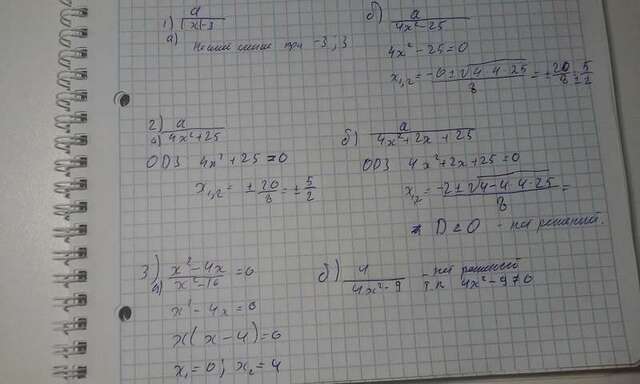 1) a/(|x|-3)
а) Не имеет смысл при -3; 3
б) a/(4x²-25)
4x²-25=0
x₁,₂ = (-0±√(4·4·25))/8 = ±20/8 = ±5/2
2) а) a/(4x²+25)
ОДЗ 4x²+25=0
x₁,₂ = ±20/8 = ±5/2
б) a/(4x²+2x+25)
ОДЗ 4x²+2x+25=0
x₁,₂ = (-2±√(4-4·4·25))/8 =
D<0 - нет решений.
3) а) (x²-4x)/(x²-16) = 0
x²-4x=0
x(x-4)=0
x₁=0; x₂=4
б) 4/(4x²-9) - нет решений
т.к 4x²-9≠0